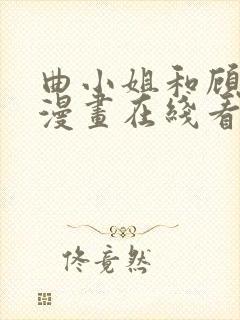 曲小姐和顾
漫畫在綫看
佟竟然